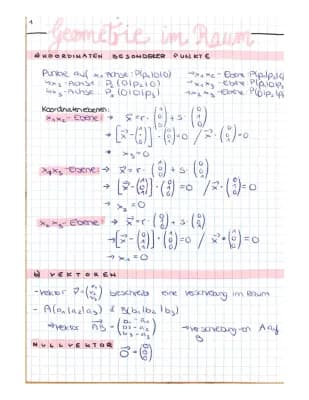 1
Geometrie im Raum
a) KOORDINATEN BESONDERER PUNKTE
Punkte auf x₁-Achse: P(p₁|0|0)
↳x₂-Achse: P₂(0|p₂|0)
↳x₃-Achse: P₃(0|0|p₃)
↳x₁x₂-Ebene P(p₁|p₂|0)
↳x₁x₃-Ebene P(p₁|0|p₃)
↳x₂x₃-Ebene P(0|p₂|p₃)
Koordinatenebenen:
x₁x₂-Ebene: → x⃗ = r·(1 0 0) + s·(0 1 0)
→ [x⃗ - (1 1 0)]·(0 0 1) = 0 / x⃗·(0 0 1) = 0
→ x₃ = 0
x₁x₃-Ebene: → x⃗ = r·(1 0 0) + s·(0 0 1)
→ x₂ = 0
x₂x₃-Ebene: → x⃗ = r·(0 1 0) + s·(0 0 1)
→ x₁ = 0
b) VEKTOREN
-Vektor v⃗ = (v₁ v₂ v₃) beschreibt eine Verschiebung im Raum
- A(a₁|a₂|a₃) & B(b₁|b₂|b₃)
↳Vektor AB⃗ = (b₁-a₁ b₂-a₂ b₃-a₃) →Verschiebung von A auf B
NULLVEKTOR
0⃗ = (0 0 0)